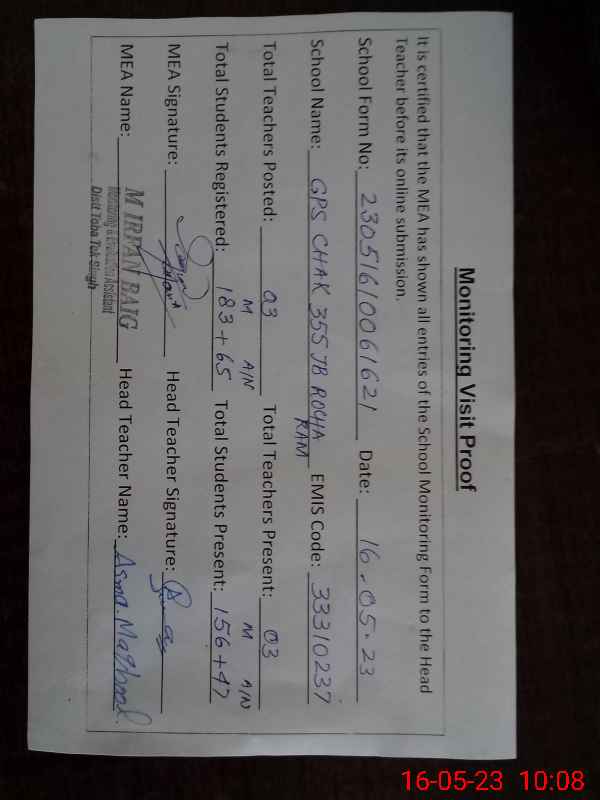 Monitoring Visit Proof
It is certified that the MEA has shown all entries of the School Monitoring Form to the Head
Teacher before its online submission.
School Form No: 23051610061621 Date: 16.05.23
School Name: GPS CHAK 355 JB ROCHA RAM EMIS Code: 33310237
Total Teachers Posted: 03 Total Teachers Present: 03
M A/N M A/N
Total Students Registered: 183+65 Total Students Present: 156+47
MEA Signature: Head Teacher Signature:
MEA Name: M IRFAN BAIG Head Teacher Name: Asma Maqbool
Monitoring & Evaluation Assistant
Distt Toba Tek Singh
16-05-23 10:08